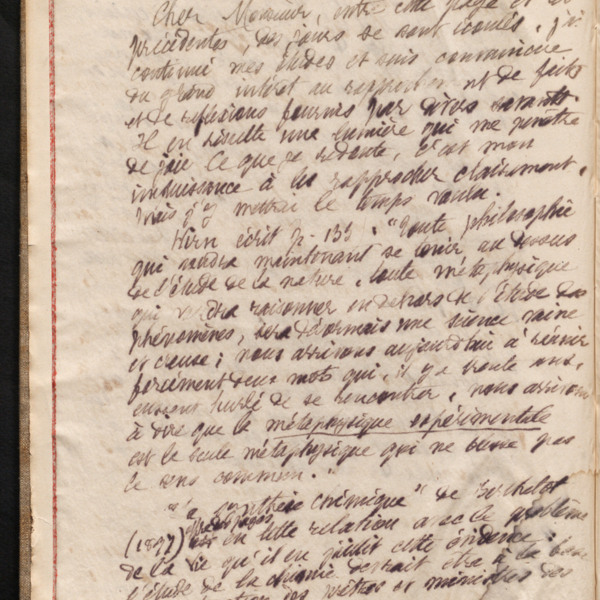 Cher Monsieur, entre cette page et les
précédentes, des jours se sont écoulés. j'ai
continué mes études et suis convaincue
du grand intérêt au rapprochement de faits
et de réflexions fournis par divers savants
Il en résulte une lumière qui me pénètre
de joie. Ce que je redoute, c'est mon
impuissance à les rapprocher clairement,
mais j'y mettrai le temps voulu.
Hirn écrit p. 133 : "Toute philosophie
qui voudra maintenant se tenir au dessus
de l'étude de la nature, toute métaphysique
qui voudra raisonner en dehors de l'étude des
phénomènes, sera désormais une science vaine
et creuse ; nous arrivons aujourd'hui à réunir
forcément deux mots qui, il y a trente ans,
eussent hurlé de se rencontrer, nous arrivons
à dire que la métaphysique expérimentale
est la seule métaphysique qui ne pas
le sens commun."
"La Synthèse chimique" de Berthelot
(1897) est en telle relation avec le problème
de la vie qu'il en jaillit cette évidence :
l'étude de la chimie devrait être à la base
des prêtres et ministres des